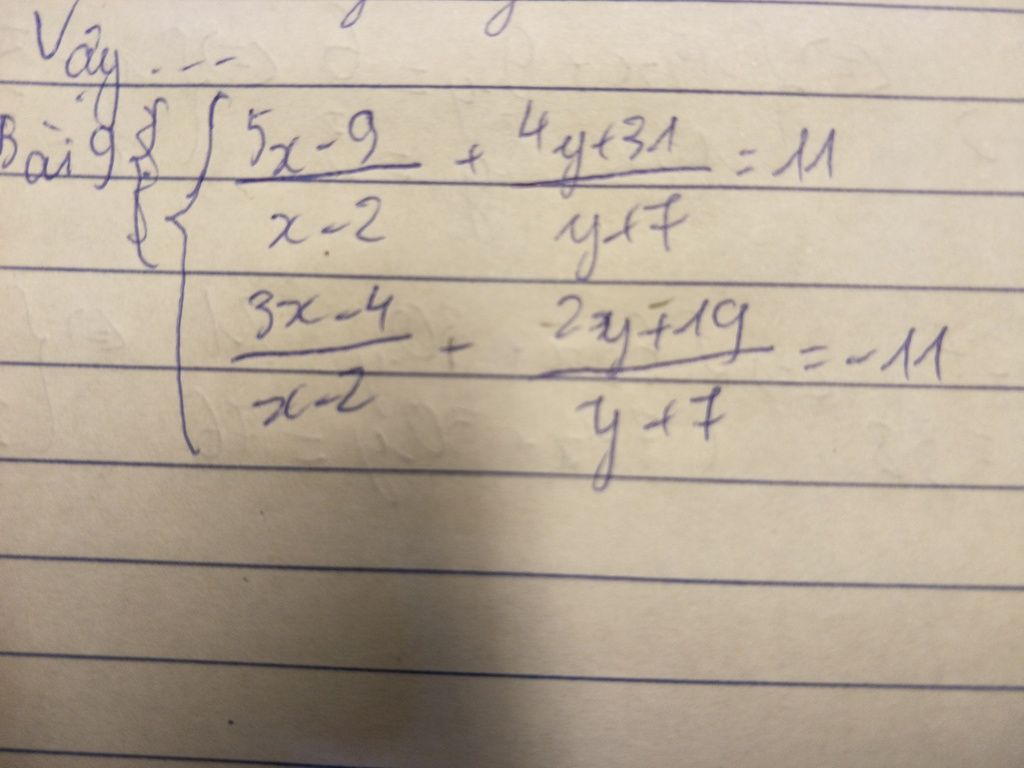 Vậy ...
Bài 9 { { (5x-9)/(x-2) + (4y+31)/(y+7) = 11
(3x-4)/(x-2) + (2y+19)/(y+7) = -11